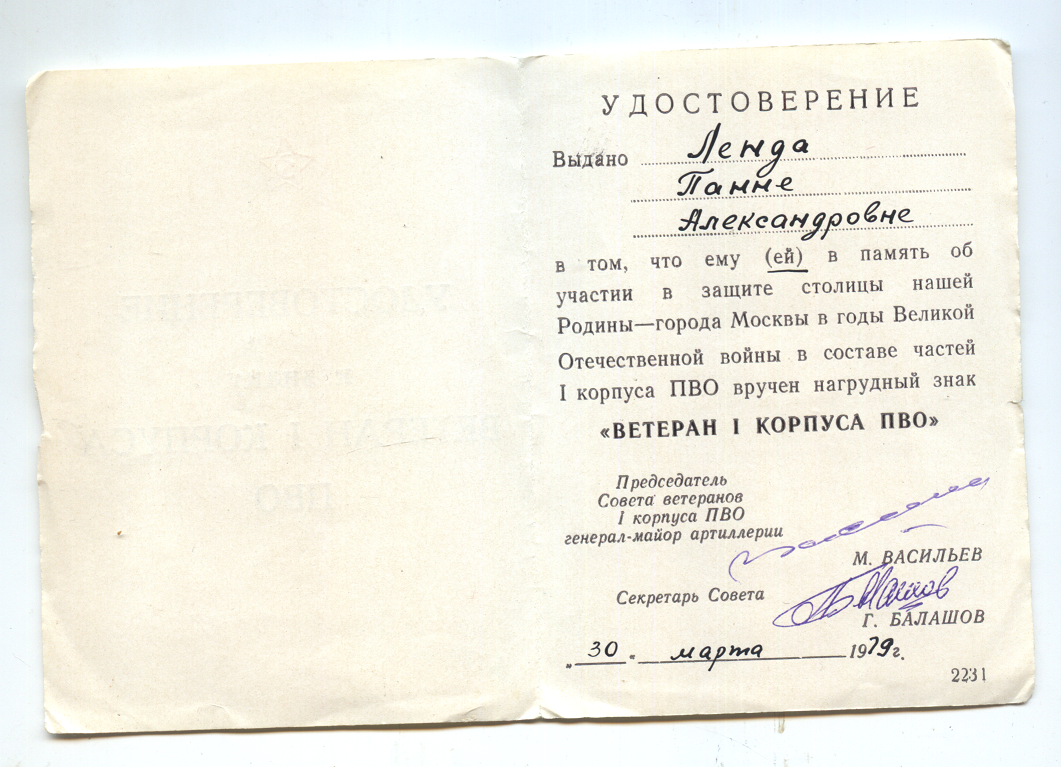 УДОСТОВЕРЕНИЕ
Выдано Ленда
Панне
Александровне
в том, что ему (ей) в память об
участии в защите столицы нашей
Родины—города Москвы в годы Великой
Отечественной войны в составе частей
I корпуса ПВО вручен нагрудный знак
«ВЕТЕРАН I КОРПУСА ПВО»
Председатель
Совета ветеранов
I корпуса ПВО
генерал-майор артиллерии
М. ВАСИЛЬЕВ
Секретарь Совета
Г. БАЛАШОВ
„ 30 “ марта 1979г.
2231